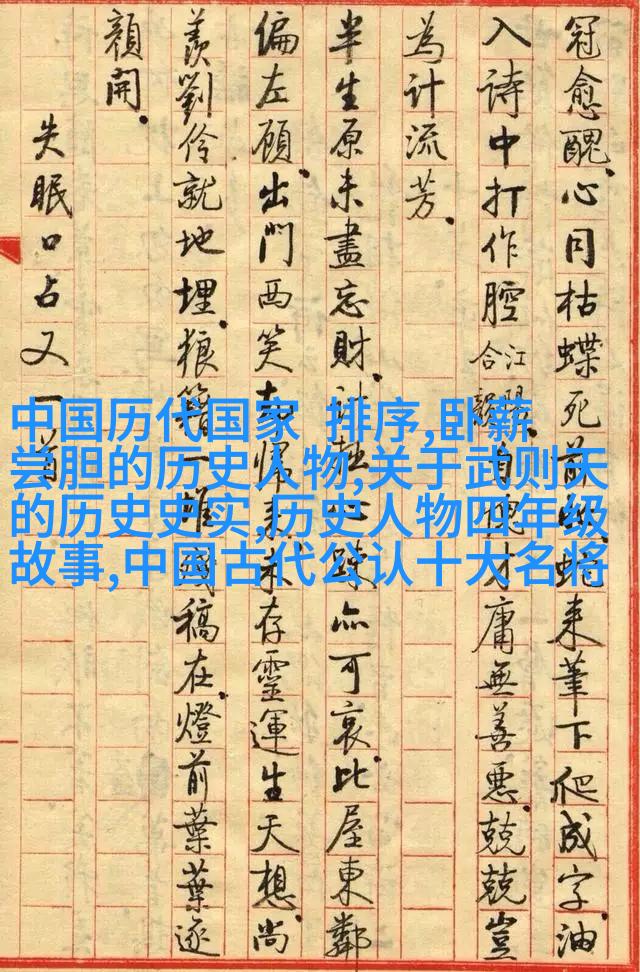 冠愈醜.心同枯蝶死前蟻来筆下爬成字.油
入詩中打作腔.自愧才庸無善惡.兢兢豈
為計流芳.
半生原未盡忘財.計心疎亦可哀.比屋東鄰
偏左顧.出門西笑歸来.未存靈運生天想.尚
羨劉伶就地埋.狼籍一堆殘稿在.燈前葉葉逐
顏開.
失眠口占又一首
中国历代国家 排序,卧薪
尝胆的历史人物,关于武则天
的历史史实,历史人物四年级
故事,中国古代公认十大名将